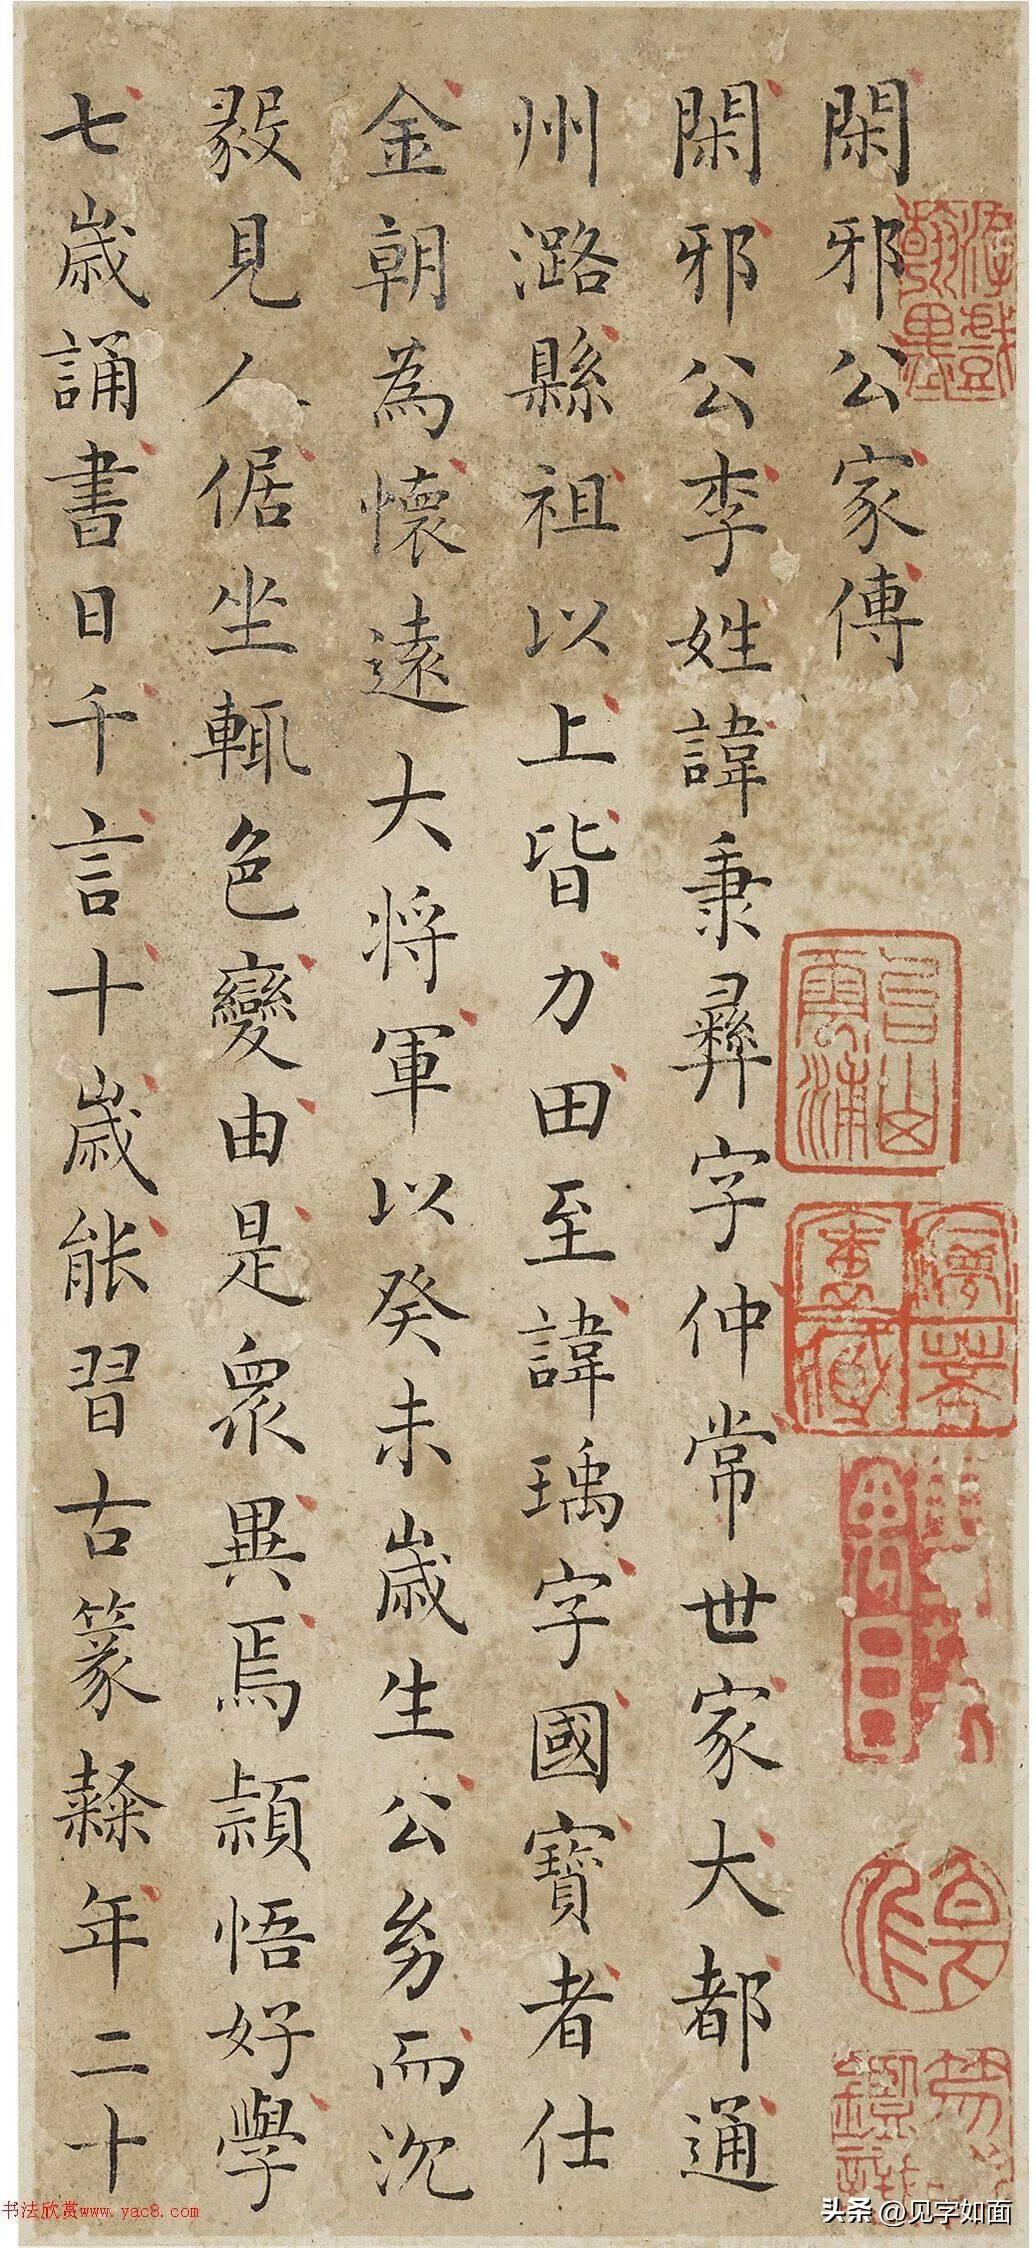 閑邪公家傳
閑邪公李姓諱秉彞字仲常世家大都通
州潞縣祖以上皆力田至諱瑀字國寶者仕
金朝為懷遠大将軍以癸未歲生公㓜而沉
毅見人倨坐輒色變由是衆異焉頴悟好學
七歲誦書日千言十歲能習古篆隸年二十
书法欣赏www.yac8.com
头条 @见字如面